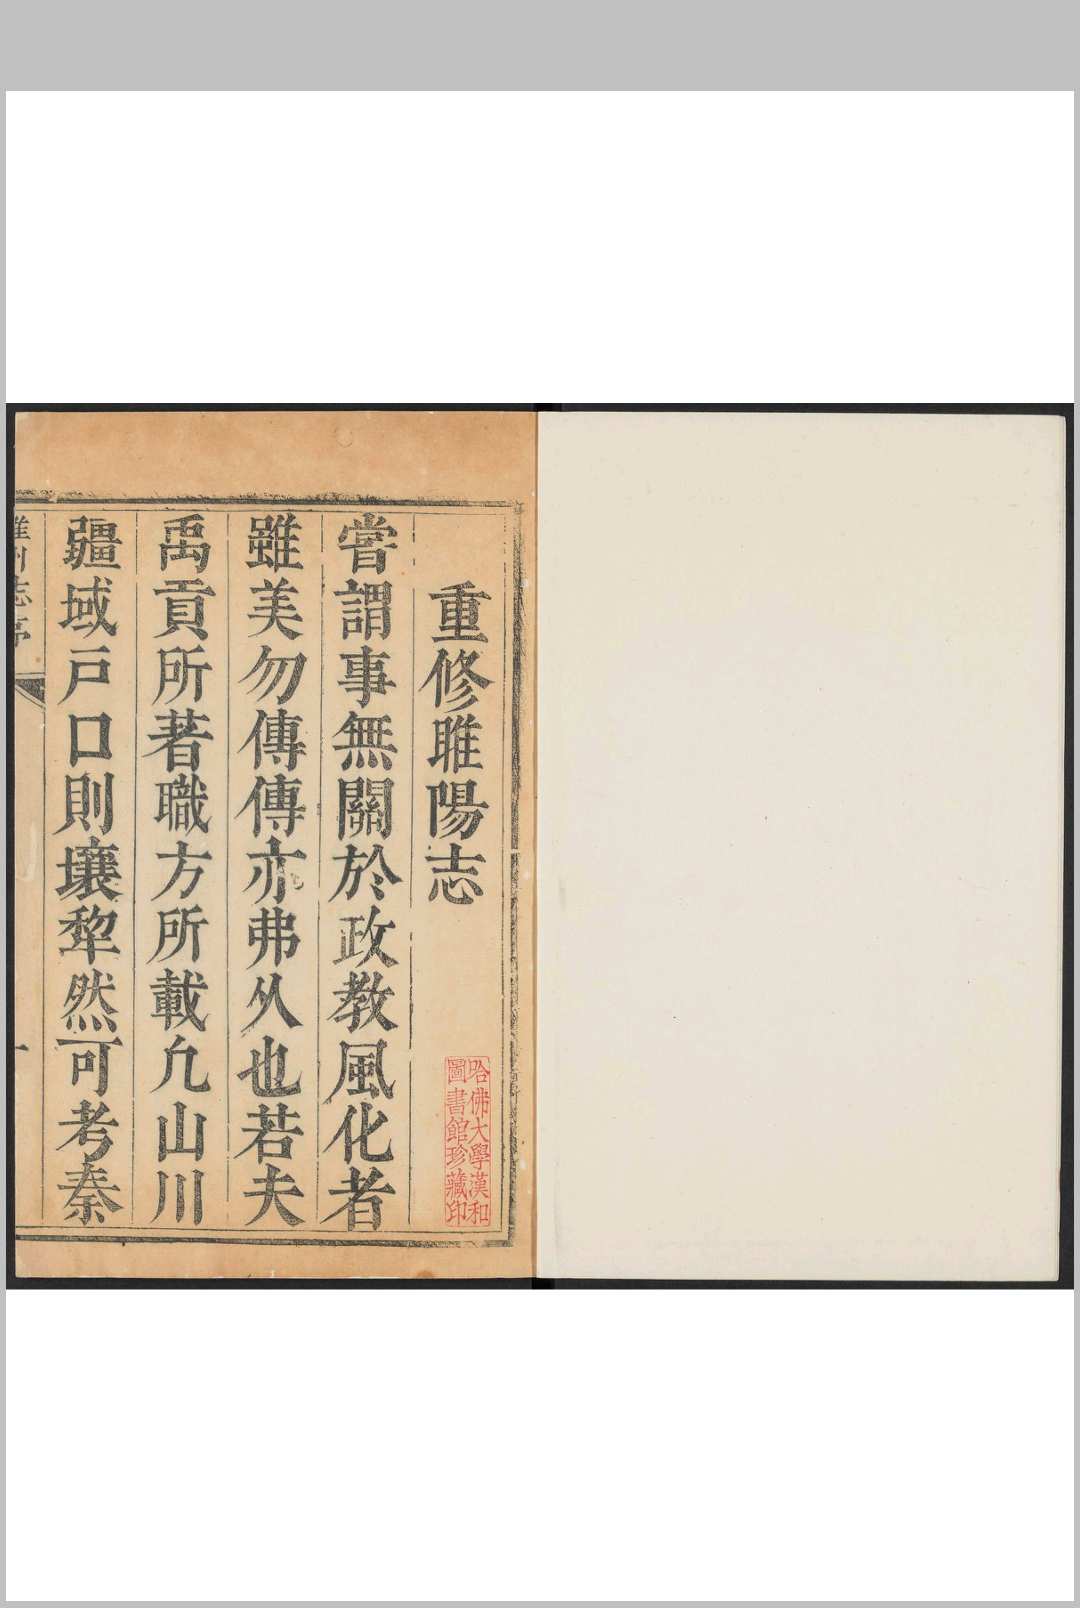 重修睢陽志
嘗謂事無關於政教風化者
雖美勿傳傳亦弗乆也若夫
禹貢所著職方所載凢山川
疆域戸口則壤犂然可考秦
睢州志序
一
哈佛大學漢和
圖書館珍藏印